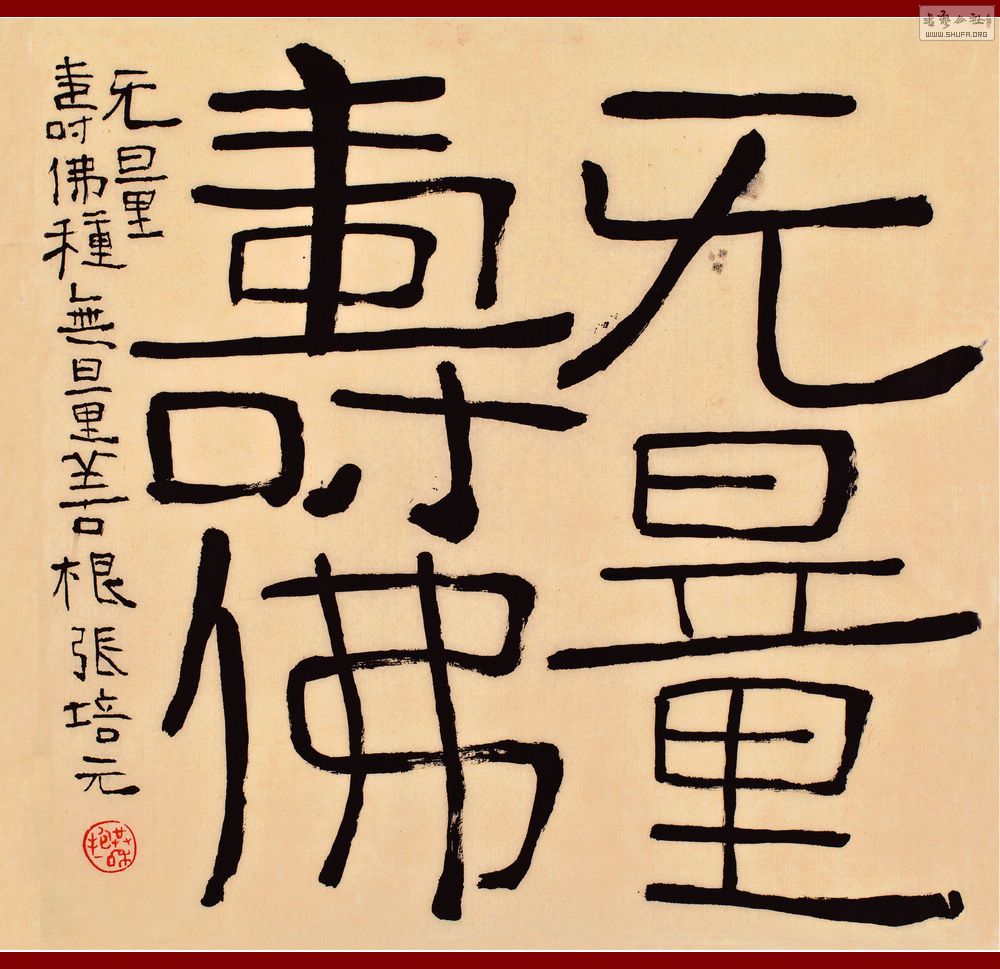 无量
壽佛
无量
壽佛種無量善根張培元
書藝公社
WWW.SHUFA.ORG